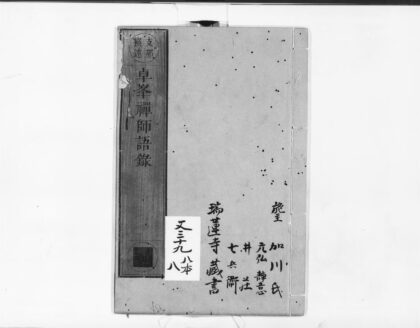 支那
撰述
卓峯禪師語錄
施主
加川氏
井
七兵衛
瑞蓮寺藏書
又三十九
八本
八